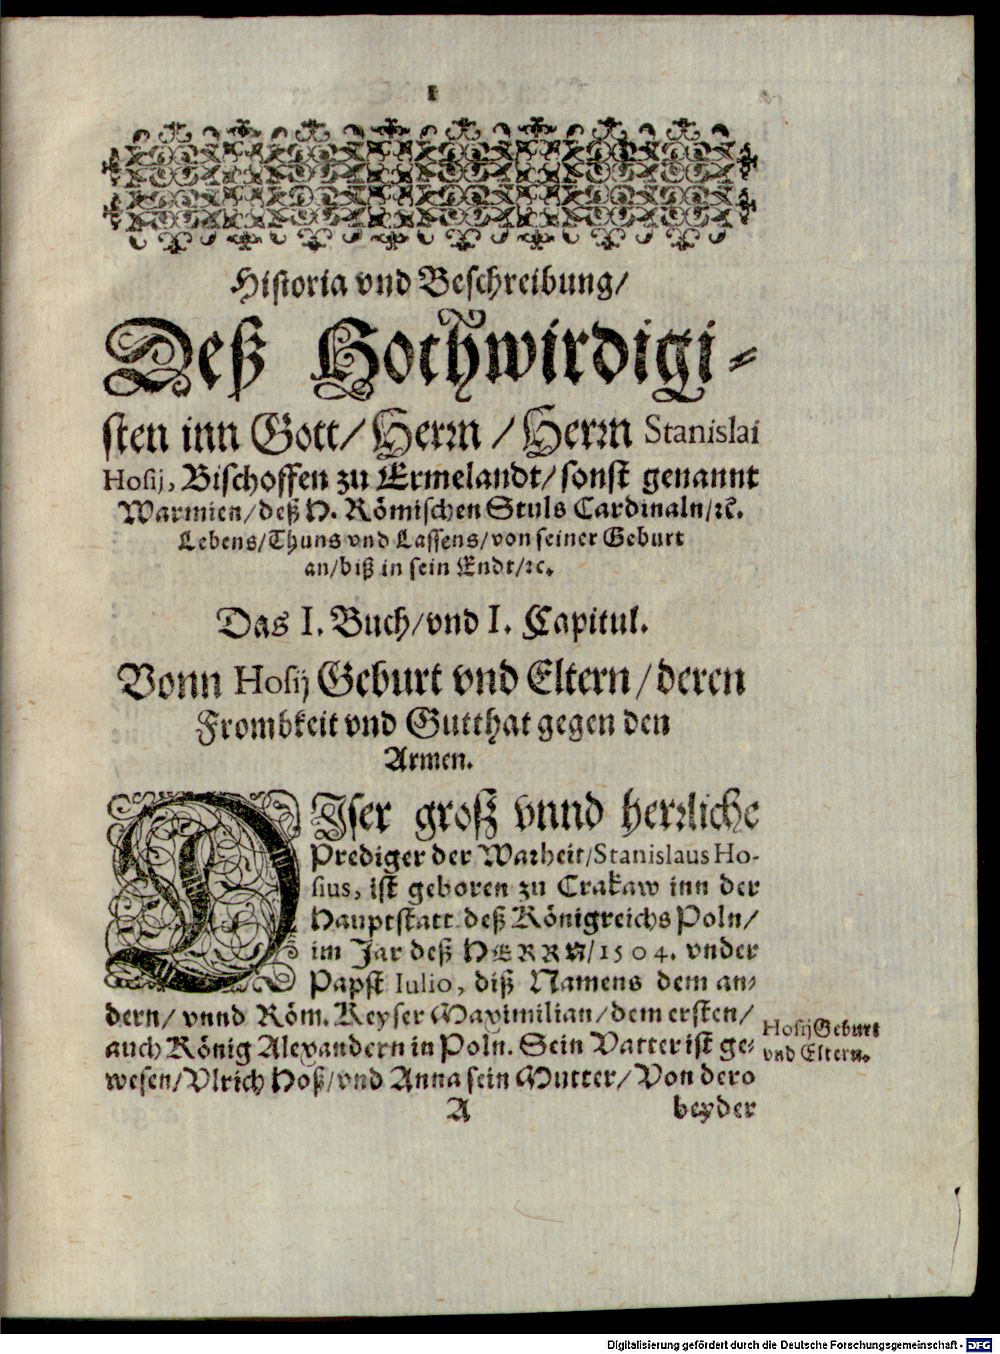 1
Historia vnd Beschreibung/
Deß Hochwirdigi-
sten inn Gott/ Herrn / Herrn Stanislai
Hosij, Bischoffen zu Ermelandt/ sonst genannt
Warmien/ deß H. Römischen Stuls Cardinaln/ ꝛc.
Lebens/ Thuns vnd Lassens/ von seiner Geburt
an/ biß in sein Endt/ ꝛc.
Das I. Buch/ vnd I. Capitul.
Vonn Hosij Geburt vnd Eltern / deren
Frombkeit vnd Gutthat gegen den
Armen.
DIser groß vnnd herrliche
Prediger der Warheit/ Stanislaus Ho-
sius, ist geboren zu Crakaw inn der
Hauptstatt deß Königreichs Poln/
im Jar deß HERRN/ 1504. vnder
Papst Iulio, diß Namens dem an-
dern/ vnnd Röm. Keyser Maximilian/ dem ersten/
auch König Alexandern in Poln. Sein Vatter ist ge-
wesen/ Vlrich Hoß/ vnd Anna sein Mutter/ Von dero
Hosij Geburt
vnd Eltern.
A beyder
Digitalisierung gefördert durch die Deutsche Forschungsgemeinschaft - DFG